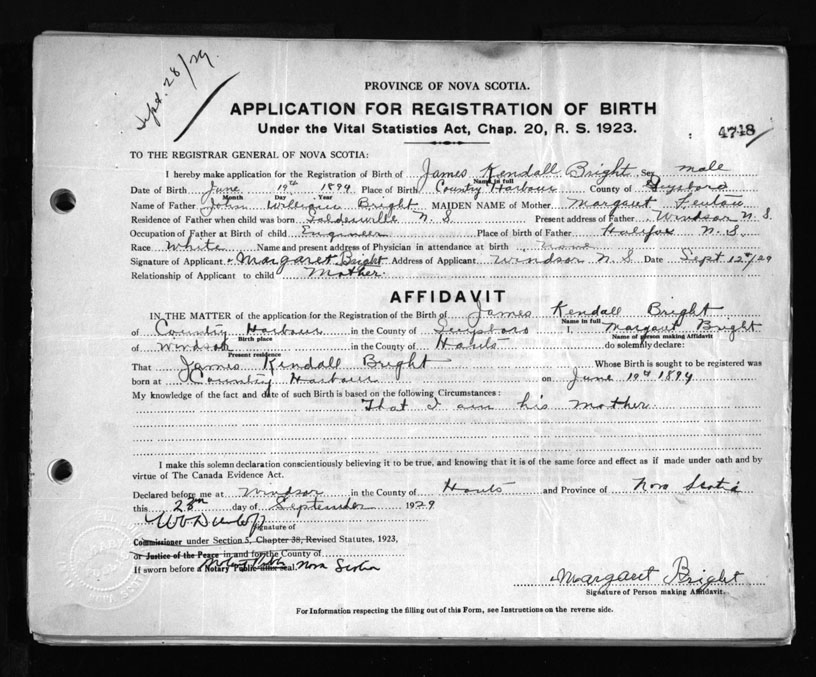 Sept. 28/29
PROVINCE OF NOVA SCOTIA.
APPLICATION FOR REGISTRATION OF BIRTH
Under the Vital Statistics Act, Chap. 20, R. S. 1923.
4748
TO THE REGISTRAR GENERAL OF NOVA SCOTIA:
I hereby make application for the Registration of Birth of James Kendall Bright Sex male
Name in full
Date of Birth June 19th 1894 Place of Birth Country Harbour County of Guysboro
Month Day Year
Name of Father John Bright MAIDEN NAME of Mother Margaret Fenton
Residence of Father when child was born Goldenville N. S Present address of Father Windsor N. S.
Occupation of Father at Birth of child Engineer Place of birth of Father Halifax N. S.
Race White Name and present address of Physician in attendance at birth none
Signature of Applicant Margaret Bright Address of Applicant Windsor N. S Date Sept 12th/29
Relationship of Applicant to child Mother.
AFFIDAVIT
IN THE MATTER of the application for the Registration of the Birth of James Kendall Bright
Name in full
of Country Harbour in the County of Guysboro I, Margaret Bright
Birth place Name of person making Affidavit
of Windsor in the County of Hants do solemnly declare:
Present residence
That James Kendall Bright Whose Birth is sought to be registered was
born at Country Harbour on June 19th 1894
My knowledge of the fact and date of such Birth is based on the following Circumstances:
That I am his mother.
I make this solemn declaration conscientiously believing it to be true, and knowing that it is of the same force and effect as if made under oath and by
virtue of The Canada Evidence Act.
Declared before me at Windsor in the County of Hants and Province of Nova Scotia
this day of September 1929
Signature of
Commissioner under Section 5, Chapter 38, Revised Statutes, 1923,
or Justice of the Peace in and for the County of
If sworn before a Notary Public affix seal. Nova Scotia
Margaret Bright
Signature of Person making Affidavit.
For Information respecting the filling out of this Form, see Instructions on the reverse side.